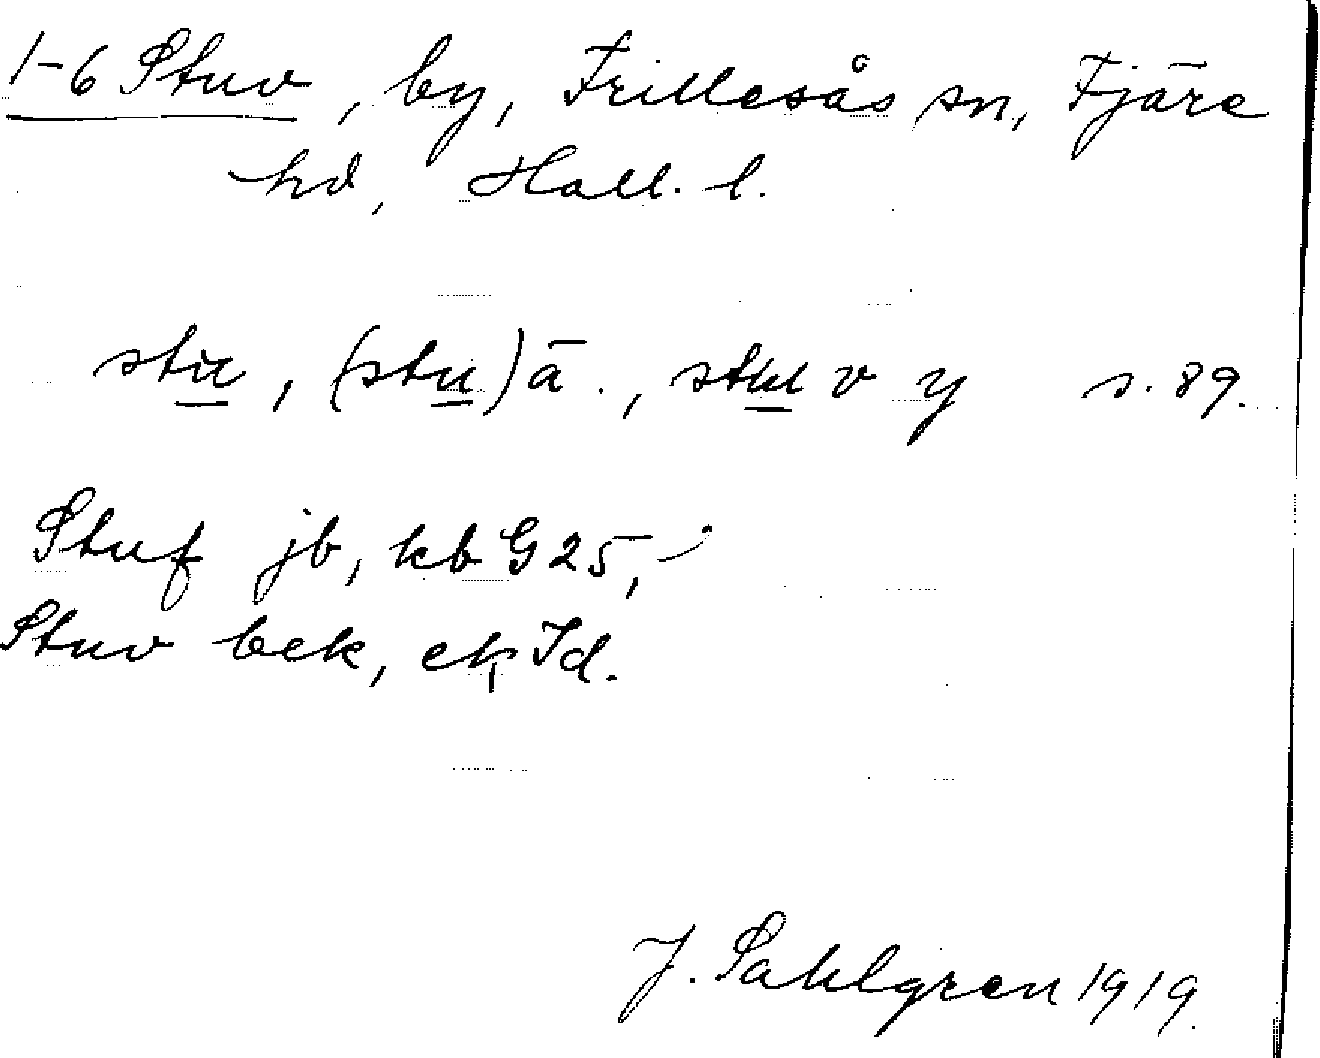 1-6 Stuv, by, Frillesås sn, Fjäre
hd, Hall. l.
stu, (stu) ä., stu v y s. 89.
Stuf jb, kb G 25,
Stuv bek, ek, Jd.
J. Sahlgren 1919.